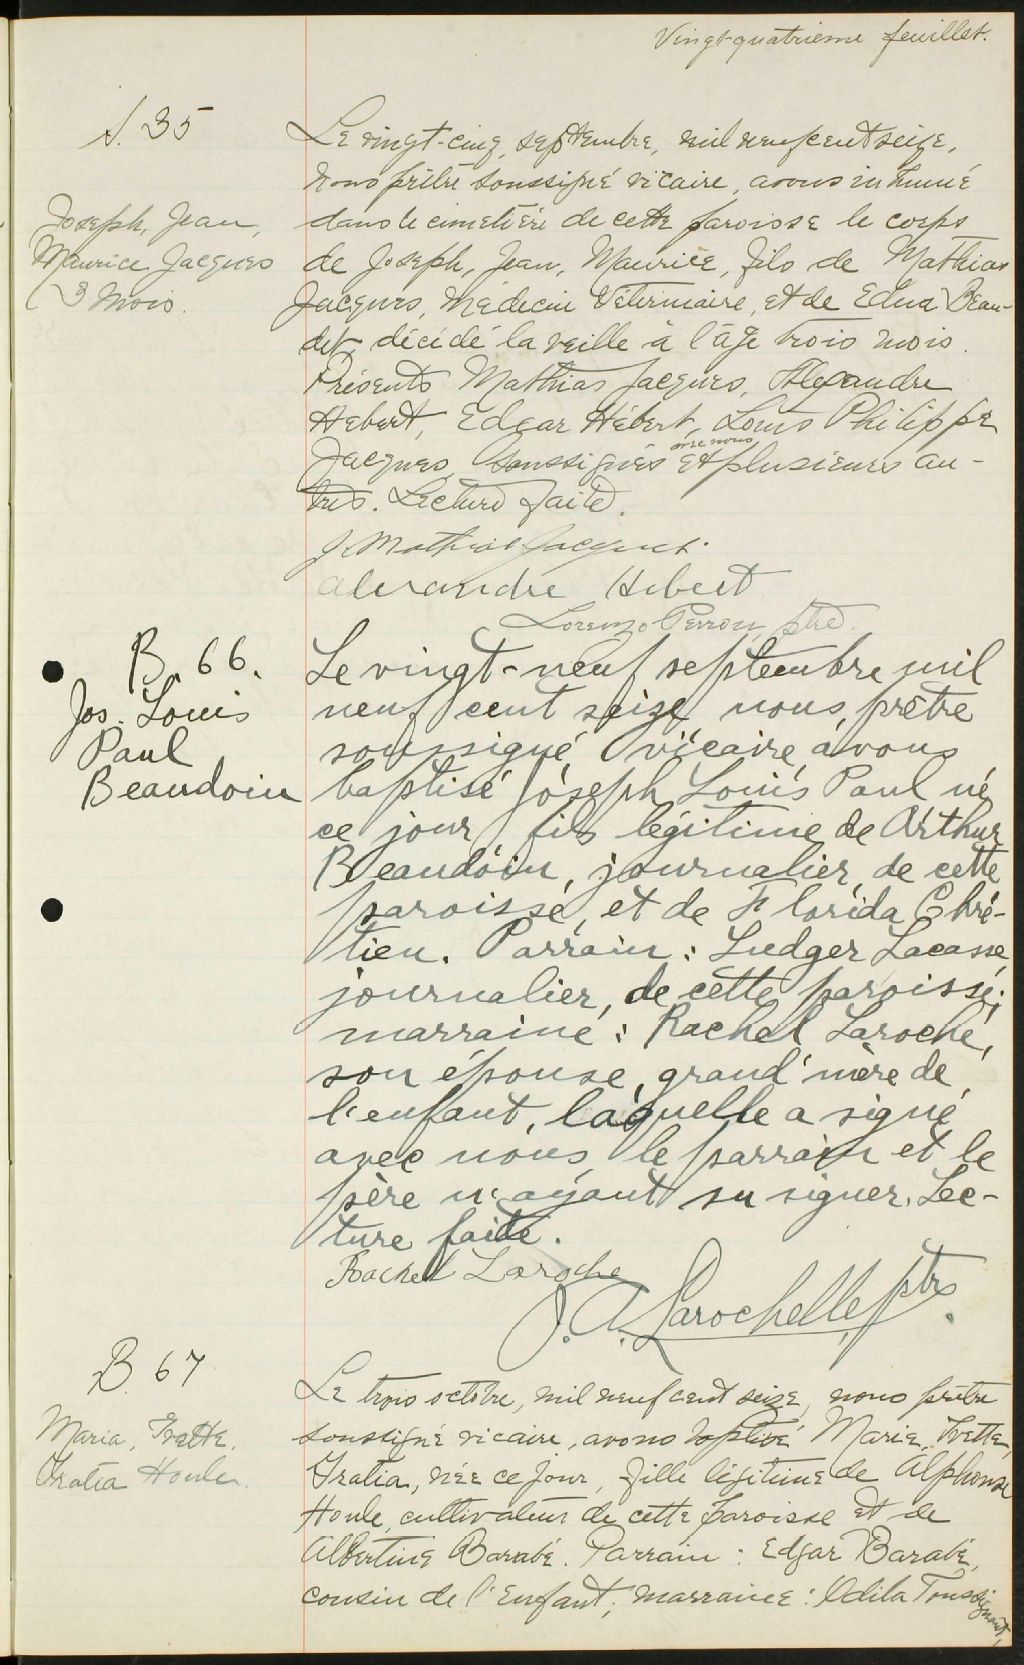 Vingt-quatrième feuillet.
S. 35
Joseph, Jean,
Maurice Jacques
3 mois.
Le vingt-cinq, septembre, mil neuf cent seize,
nous prêtre soussigné vicaire, avons inhumé
dans le cimetière de cette paroisse le corps
de Joseph, Jean, Maurice, fils de Mathias
Jacques, Médecin Vétérinaire, et de Edna Beau-
det, décédé la veille à l'âge trois mois.
Présents Mathias Jacques, Alexandre
Hebert, Edgar Hébert, Louis Philippe
Jacques, soussignés avec nous et plusieurs au-
tres. Lecture faite.
J. Mathias Jacques.
Alexandre Hebert
Lorenzo Perron ptre.
B. 66.
Jos. Louis
Paul
Beaudoin
Le vingt-neuf septembre mil
neuf cent seize, nous, prêtre
soussigné, vicaire, avons
baptisé Joseph Louis Paul né
ce jour, fils légitime de Arthur
Beaudoin, journalier, de cette
paroisse, et de Florida Chré-
tien. Parrain : Ludger Lacasse
journalier, de cette paroisse;
marraine : Rachel Laroche,
son épouse, grand'mère de
l'enfant, laquelle a signé
avec nous, le parrain et le
père n'ayant su signer. Lec-
ture faite.
Rachel Laroche
J. A. Larochelle, ptre.
B. 67
Maria, Ivette,
Gratia Houle.
Le trois octobre, mil neuf cent seize, nous prêtre
soussigné vicaire, avons baptisé Marie, Ivette,
Gratia, née ce jour, fille légitime de Alphonse
Houle, cultivateur de cette paroisse et de
Albertine Barabé. Parrain : Edgar Barabé,
cousin de l'enfant; marraine : Odila Toussignant,